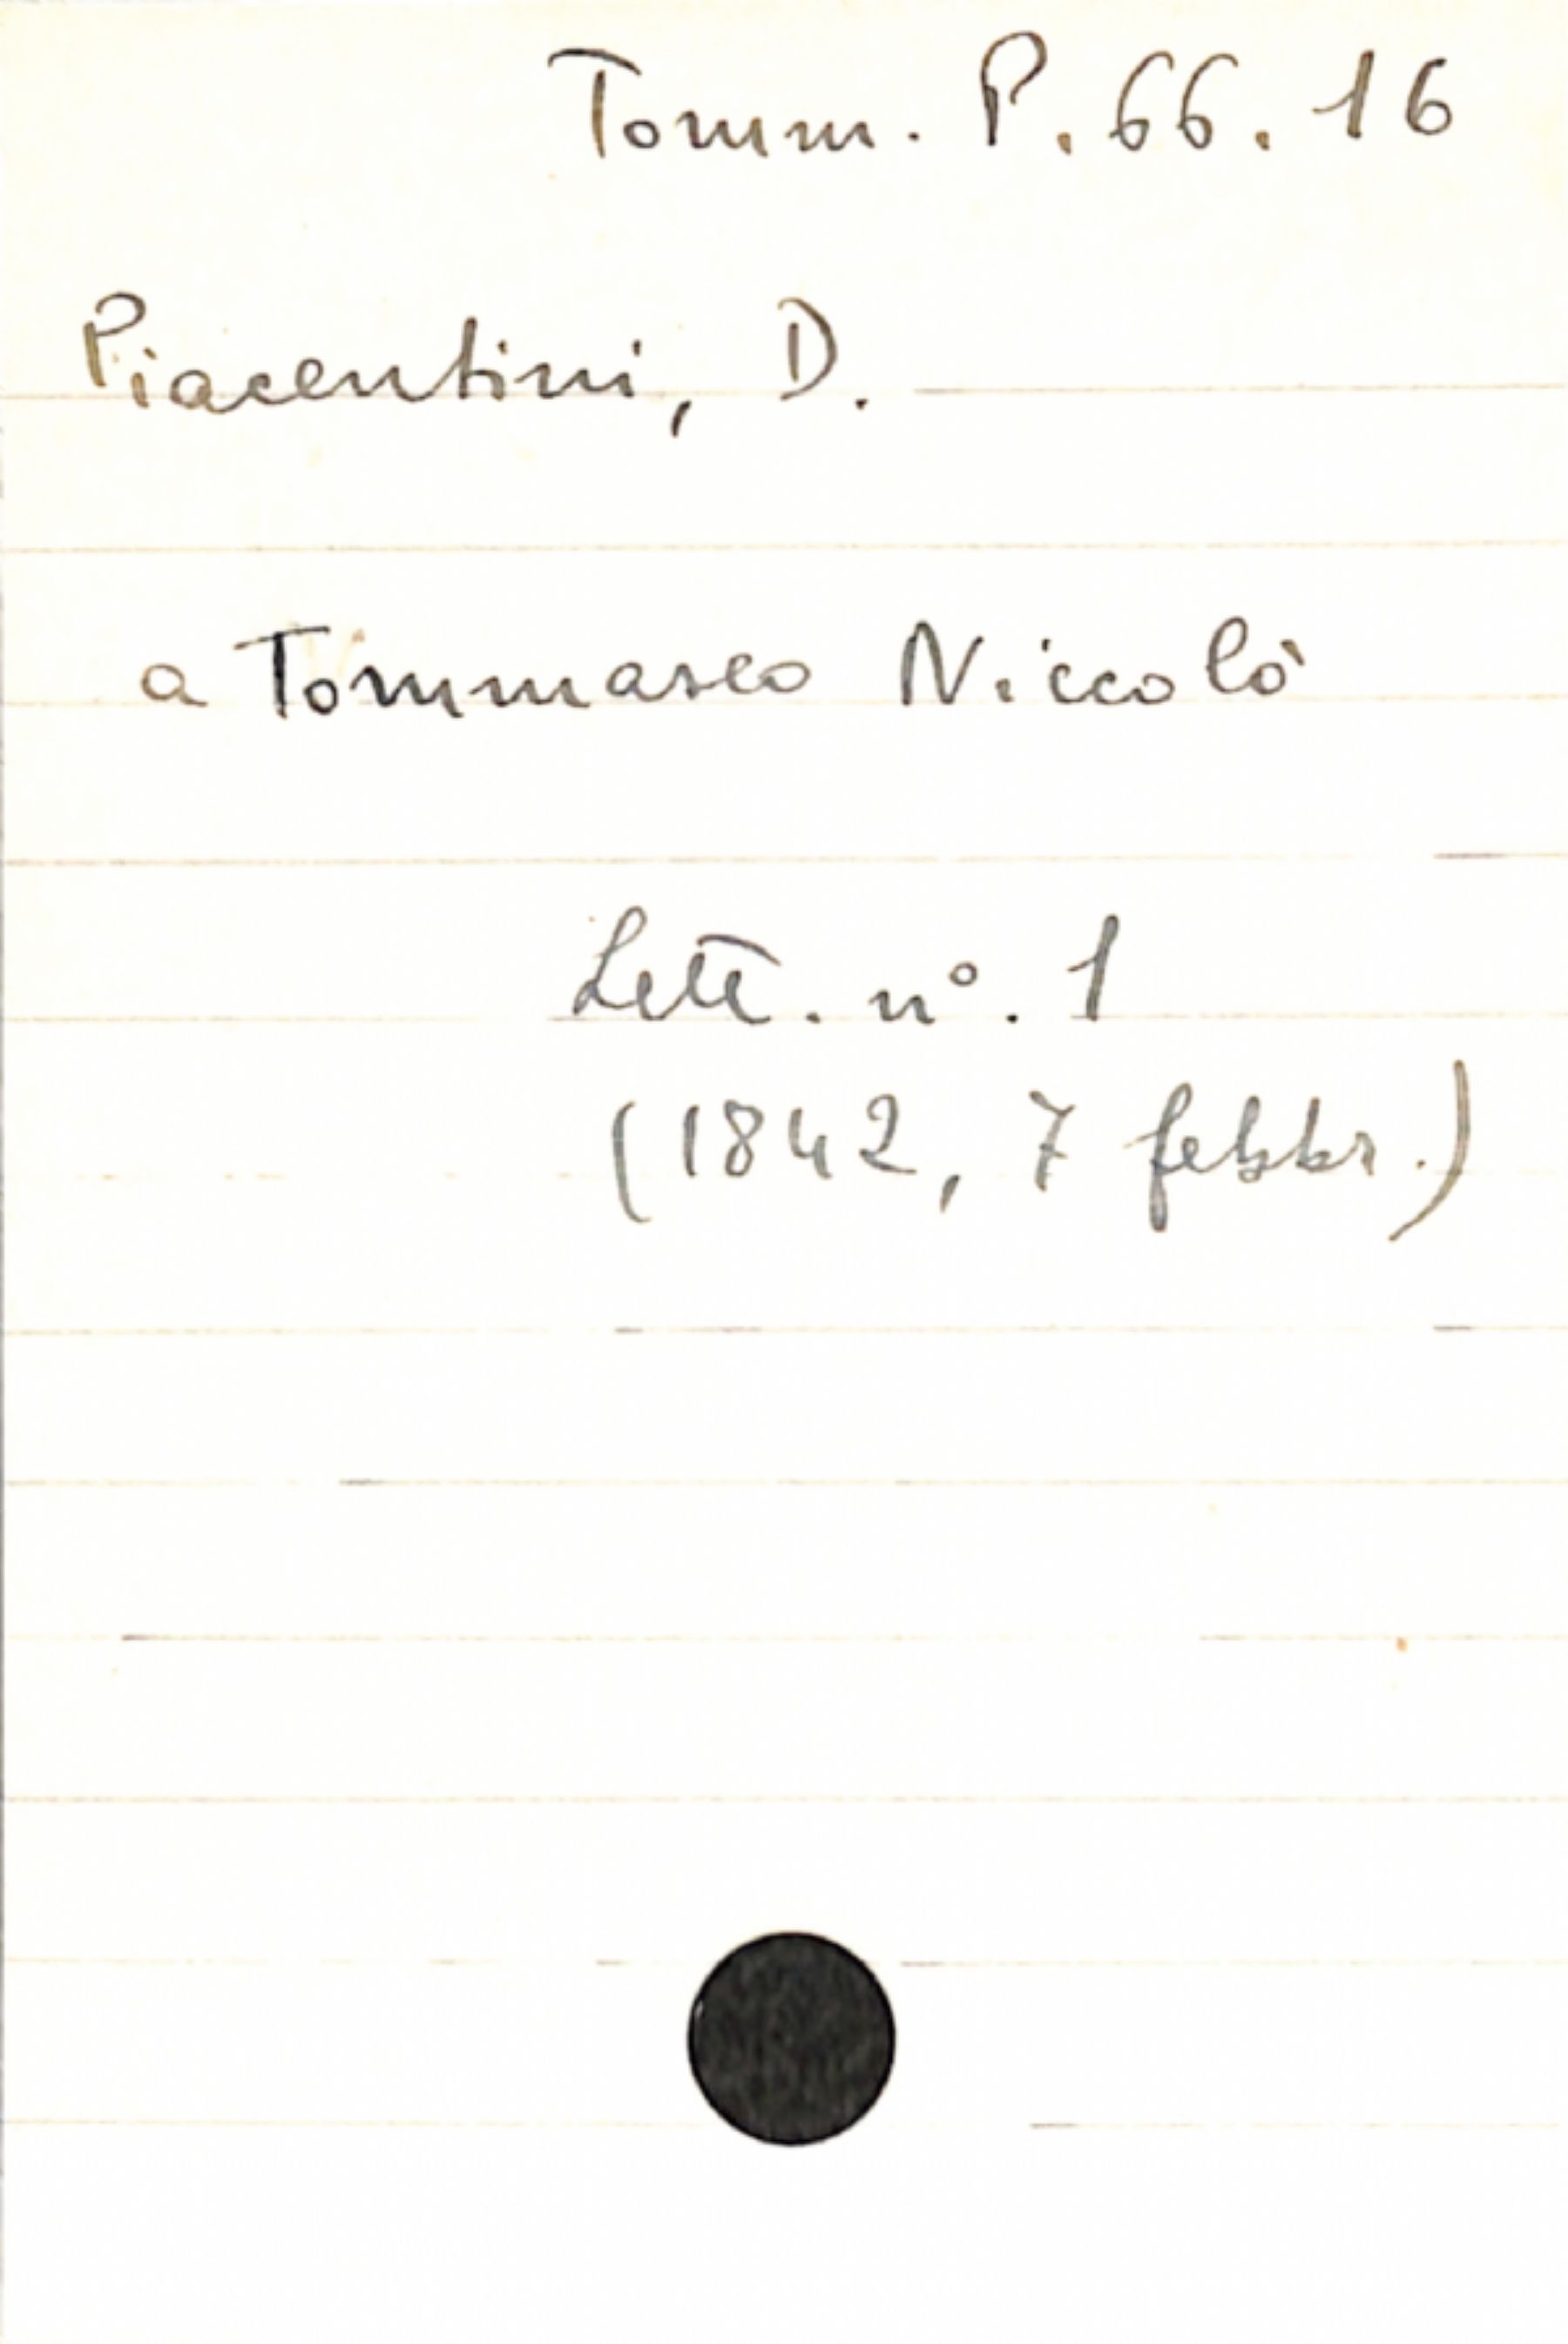 Tomm. P. 66. 16
Piacentini, D.
a Tommaseo Niccolò
Lett. n°. 1
(1842, 7 febbr.)